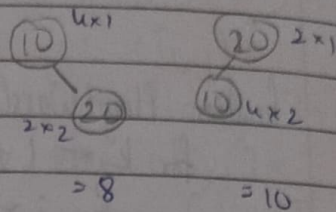 10 4×1 20 2×1
2×2 20 10 4×2
= 8 = 10